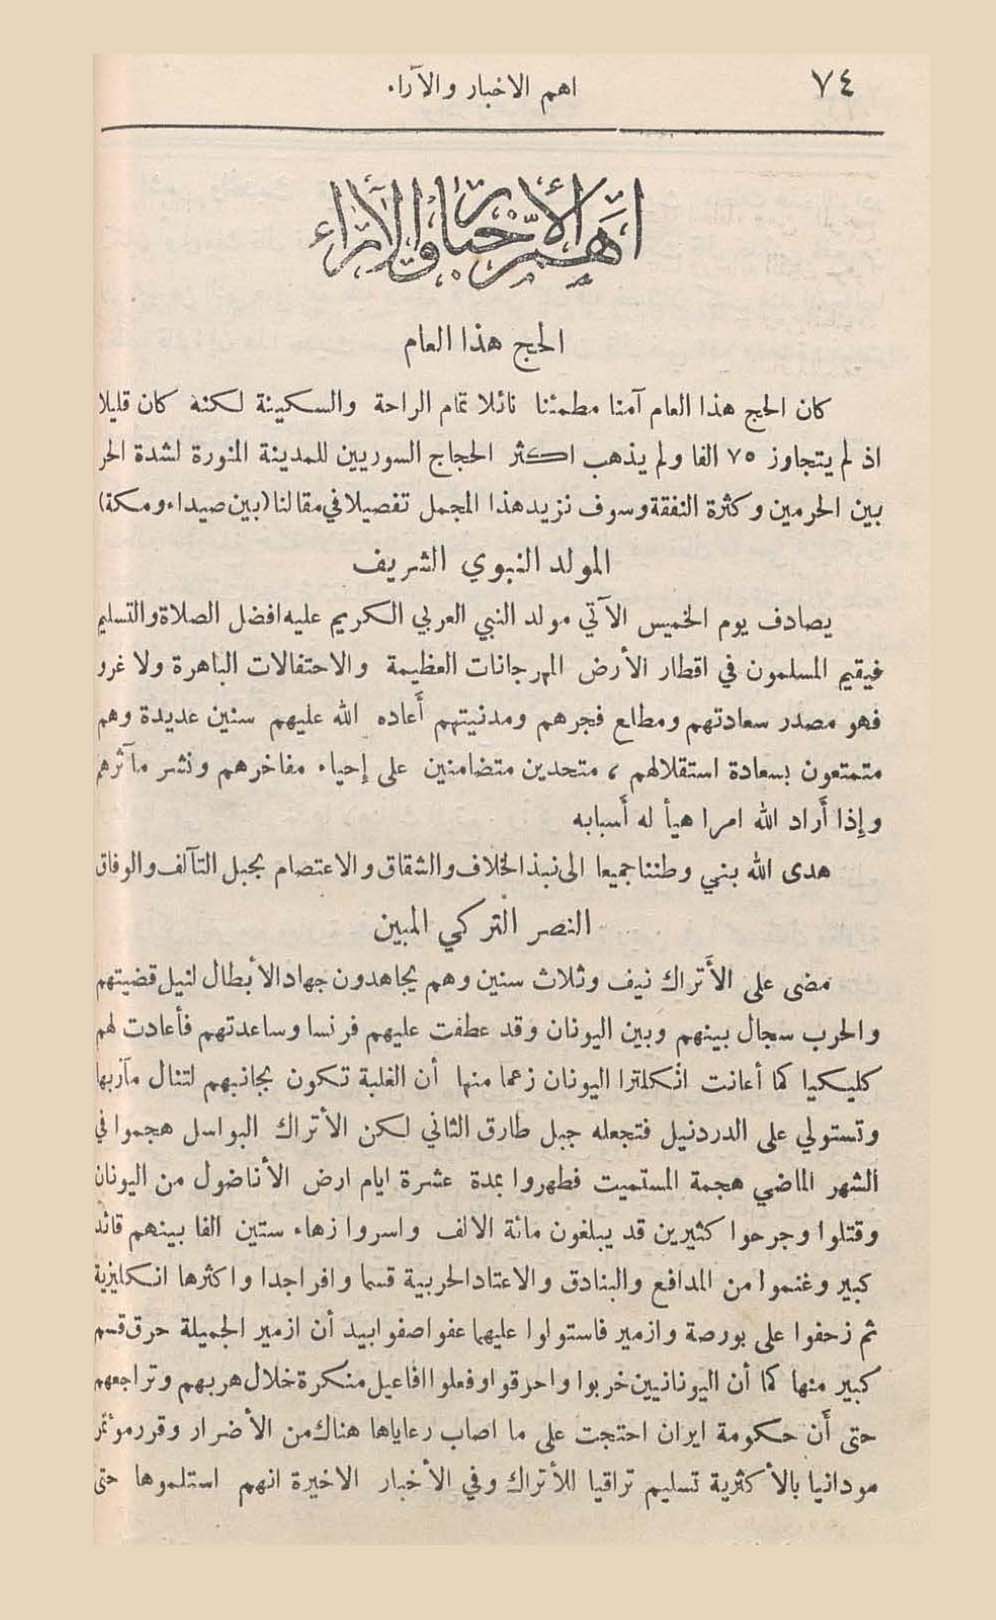 ٧٤
اهم الاخبار والآراء
اهم الأخبار والآراء
الحج هذا العام
كان الحج هذا العام آمنا مطمئنا نائلا تمام الراحة والسكينة لكنه كان قليلا
اذ لم يتجاوز ٧٥ الفا ولم يذهب اكثر الحجاج السوريين للمدينة المنورة لشدة الحر
بين الحرمين وكثرة النفقة وسوف نزيد هذا المجمل تفصيلا في مقالنا (بين صيداء ومكة)
المولد النبوي الشريف
يصادف يوم الخميس الآتي مولد النبي العربي الكريم عليه افضل الصلاة والتسليم
فيقيم المسلمون في اقطار الأرض المهرجانات العظيمة والاحتفالات الباهرة ولا غرو
فهو مصدر سعادتهم ومطلع فجرهم ومدنيتهم أعاده الله عليهم سنين عديدة وهم
متمتعون بسعادة استقلالهم ، متحدين متضامنين على إحياء مفاخرهم ونشر مآثرهم
وإذا أراد الله امرا هيأ له أسبابه
هدى الله بني وطننا جميعا الى نبذ الخلاف والشقاق والاعتصام بحبل التآلف والوفاق
النصر التركي المبين
مضى على الأتراك نيف وثلاث سنين وهم يجاهدون جهاد الأبطال لنيل قضيتهم
والحرب سجال بينهم وبين اليونان وقد عطفت عليهم فرنسا وساعدتهم فأعادت لهم
كليكيا كما أعانت انكلترا اليونان زعما منها أن الغلبة تكون بجانبهم لتنال مآربها
وتستولي على الدردنيل فتجعله جبل طارق الثاني لكن الأتراك البواسل هجموا في
الشهر الماضي هجمة المستميت فطهروا بمدة عشرة ايام ارض الأناضول من اليونان
وقتلوا وجرحوا كثيرين قد يبلغون مائة الالف واسروا زهاء ستين الفا بينهم قائد
كبير وغنموا من المدافع والبنادق والاعتاد الحربية قسما وافرا جدا واكثرها انكليزية
ثم زحفوا على بورصة وازمير فاستولوا عليهما عفوا صفوا بيد أن ازمير الجميلة حرق قسم
كبير منها كما أن اليونانيين خربوا واحرقوا وفعلوا افاعيل منكرة خلال هربهم وتراجعهم
حتى أن حكومة ايران احتجت على ما اصاب رعاياها هناك من الأضرار وقرر مؤتمر
مودانيا بالأكثرية تسليم تراقيا للأتراك وفي الأخبار الاخيرة انهم استلموها حتى